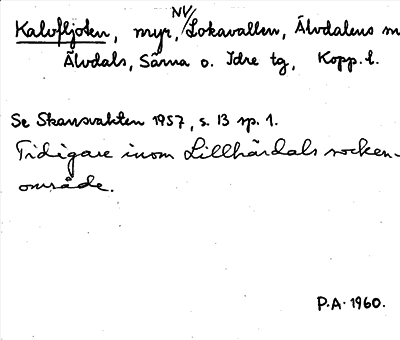 Kalvfljoten, myr, NV/Lokavallen, Älvdalens m
Älvdals, Särna o. Idre tg, Kopp. l.
Se Skansvakten 1957, s. 13 sp. 1.
Tidigare inom Lillhärdals socken-
område.
P.A. 1960.